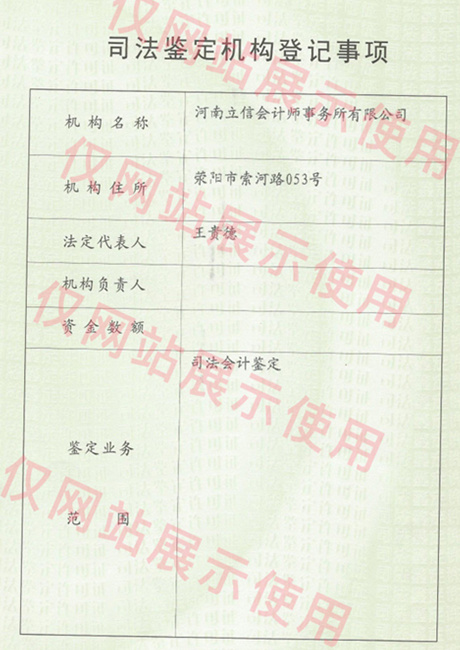 司法鉴定机构登记事项
机构名称
河南立信会计师事务所有限公司
机构住所
荥阳市索河路053号
法定代表人
王贵德
机构负责人
资金数额
鉴定业务
范围
司法会计鉴定
仅网站展示使用
仅网站展示使用
仅网站展示使用
仅网站展示使用